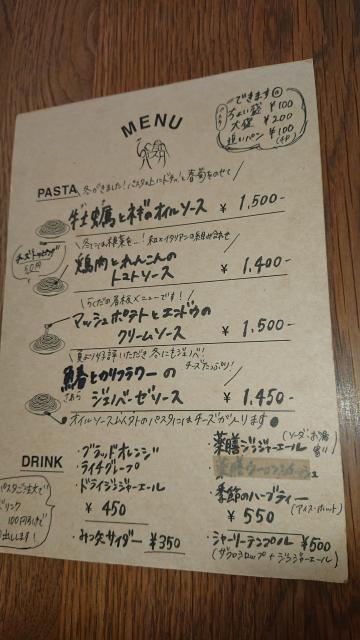 MENU
できます
ちょい盛 ¥100
大盛 ¥200
追いパン ¥100
PASTA
冬がきました!パスタの上にドサッ!と春菊をのせて
牡蠣とネギのオイルソース ¥1,500-
チーズトッピング
50円
冬といえば根菜を…!和×イタリアンの組み合わせ
鶏肉とれんこんの
トマトソース ¥1,400-
らくだの看板メニューです!
マッシュポテトとエンドウの
クリームソース ¥1,500-
夏より好評いただき冬にもジェノベ!
チーズたっぷり!
鰆とカリフラワーの
さわら
ジェノベーゼソース ¥1,450-
●オイルソース以外のパスタにはチーズが入ります●
DRINK
・ブラッドオレンジ
・ライチグレープ
・ドライジンジャーエール
¥450
・みつ矢サイダー ¥350
パスタご注文で
ドリンク
100円引きで
お出しします!
・薬膳ジンジャーエール
(ソーダ・お湯割り)
・季節のハーブティー
¥550 (アイス・ホット)
・シャーリーテンプル ¥500
(ザクロシロップ+ジンジャーエール)